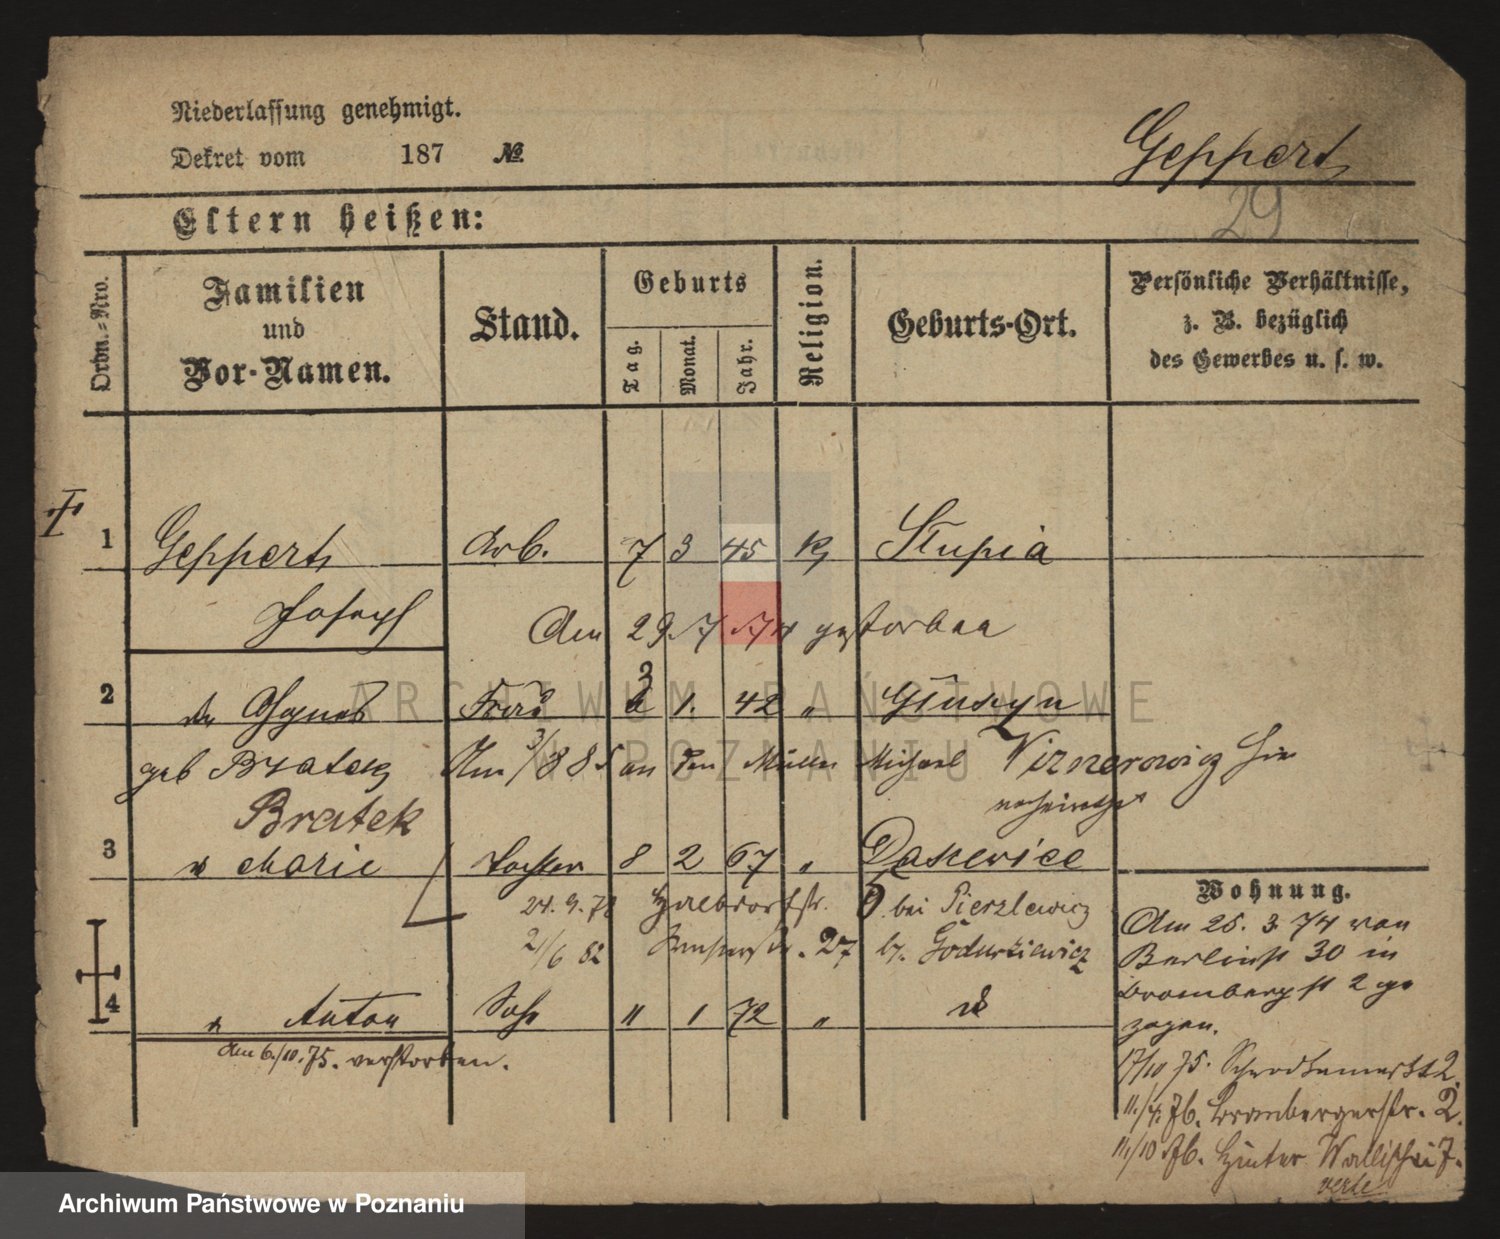 Niederlassung genehmigt.
Dekret vom 187 №
Geppert
29
Eltern heißen:
Ordn.=Nro.
Familien
und
Vor-Namen.
Stand.
Geburts
Tag.
Monat.
Jahr.
Religion.
Geburts-Ort.
Persönliche Verhältnisse,
z. B. bezüglich
des Gewerbes u. s. w.
1 Geppert Arb. 7 3 45 K Slupia
Joseph Am 29. 7. 74 gestorben
ARCHIWUM PAŃSTWOWE
W POZNANIU
2 Agnes Frau 3 1. 42 " Gluszyn
geb Bratek Am 3/8 85 an den Müller Michael Viznerowicz hier
verheirathet
Bratek
3 Marie Tochter 8 2 67 " Daszewice
Wohnung.
24. 9. 78 Halbdorfstr. 5 bei Pierzlewicz
21/6 82 27 b.
4 Anton Sohn 11 1 72 "
Am 6./10. 75. verstorben.
Am 26. 3 74 von
Berlinst 30 in
Bromberg st 2 ge
zogen.
17/10 75. Schrodkamarkt 2.
11./4. 76. Brombergerstr. 2.
11./10 76. Hinter Wallischei 7.
Archiwum Państwowe w Poznaniu